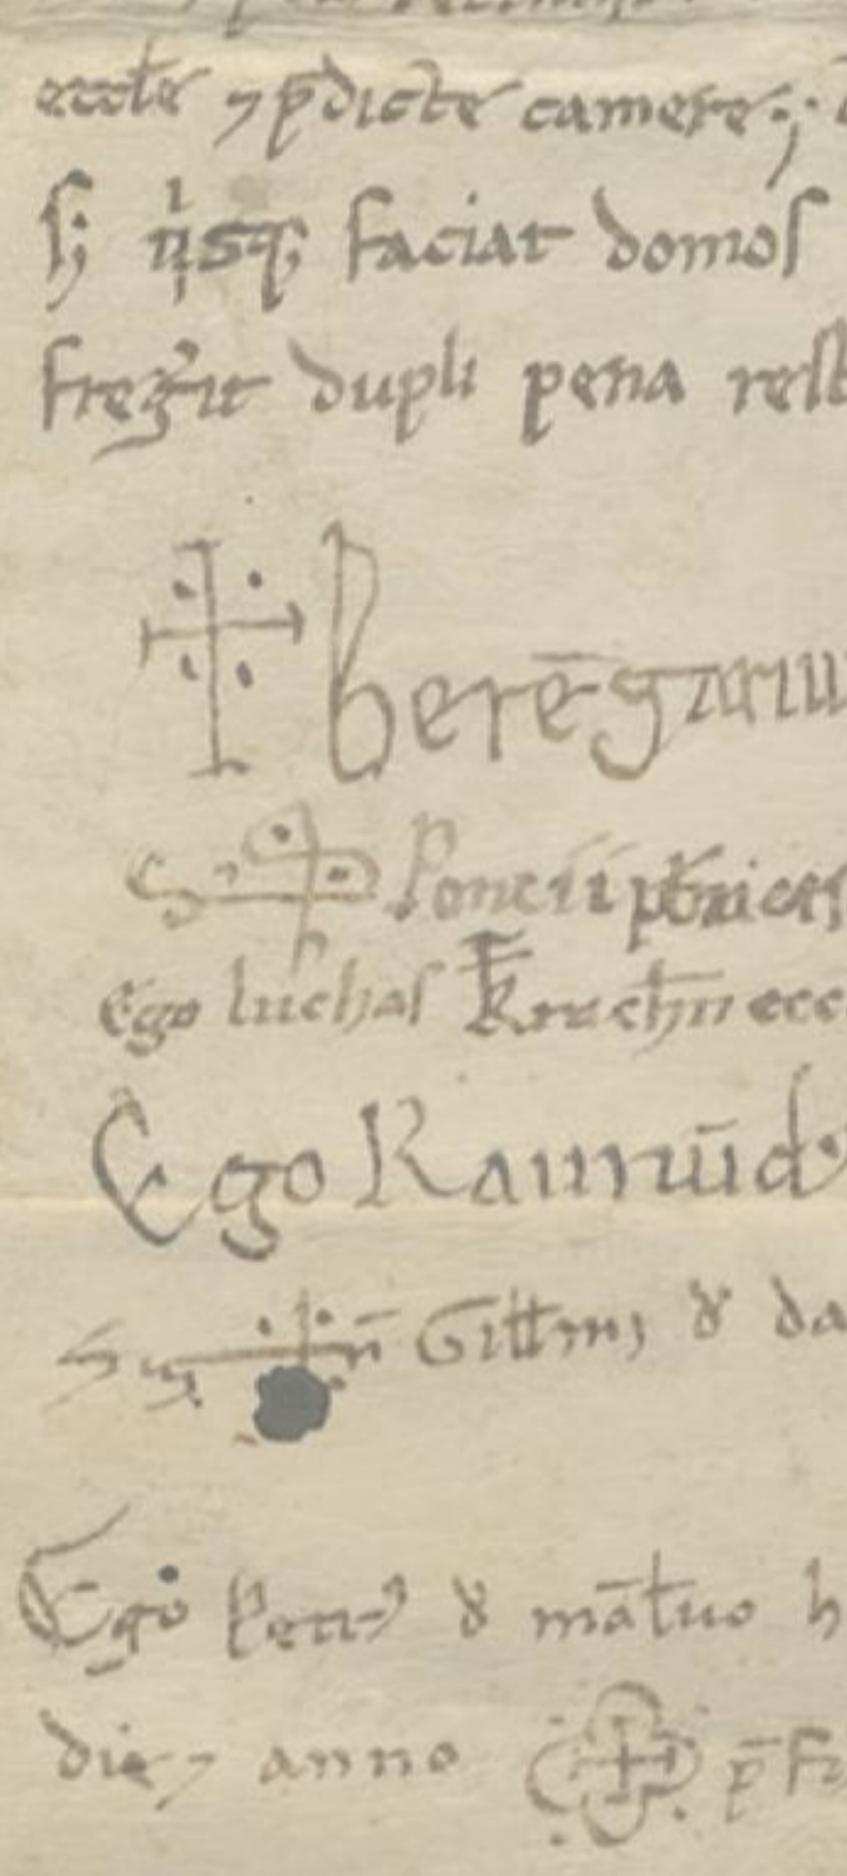 eccłe ⁊ p̄dicte camere;
s; nisq; faciat domos
fregit dupli pena rest
Berēgariu
Poncii
Ego luchas
Ego Raimūd
Giłłmi đ da
Ego Petr⁹ đ māłeuo h
die ⁊ anno p̄ fi